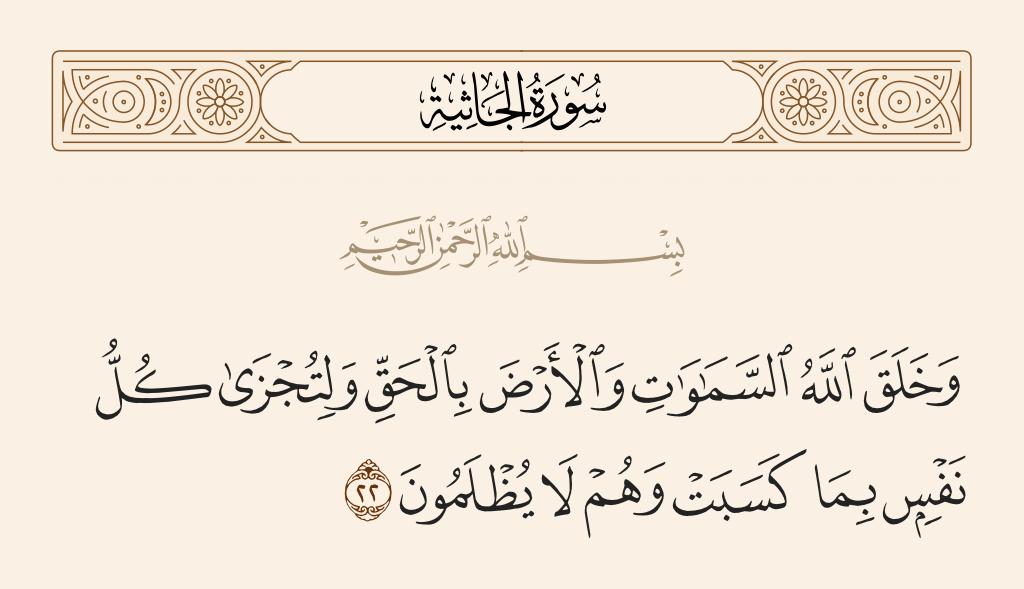 سُورَةُ الجَاثِيَةِ
بِسْمِ ٱللَّهِ ٱلرَّحْمَٰنِ ٱلرَّحِيمِ
وَخَلَقَ ٱللَّهُ ٱلسَّمَٰوَٰتِ وَٱلْأَرْضَ بِٱلْحَقِّ وَلِتُجْزَىٰ كُلُّ
نَفْسٍۭ بِمَا كَسَبَتْ وَهُمْ لَا يُظْلَمُونَ ٢٢